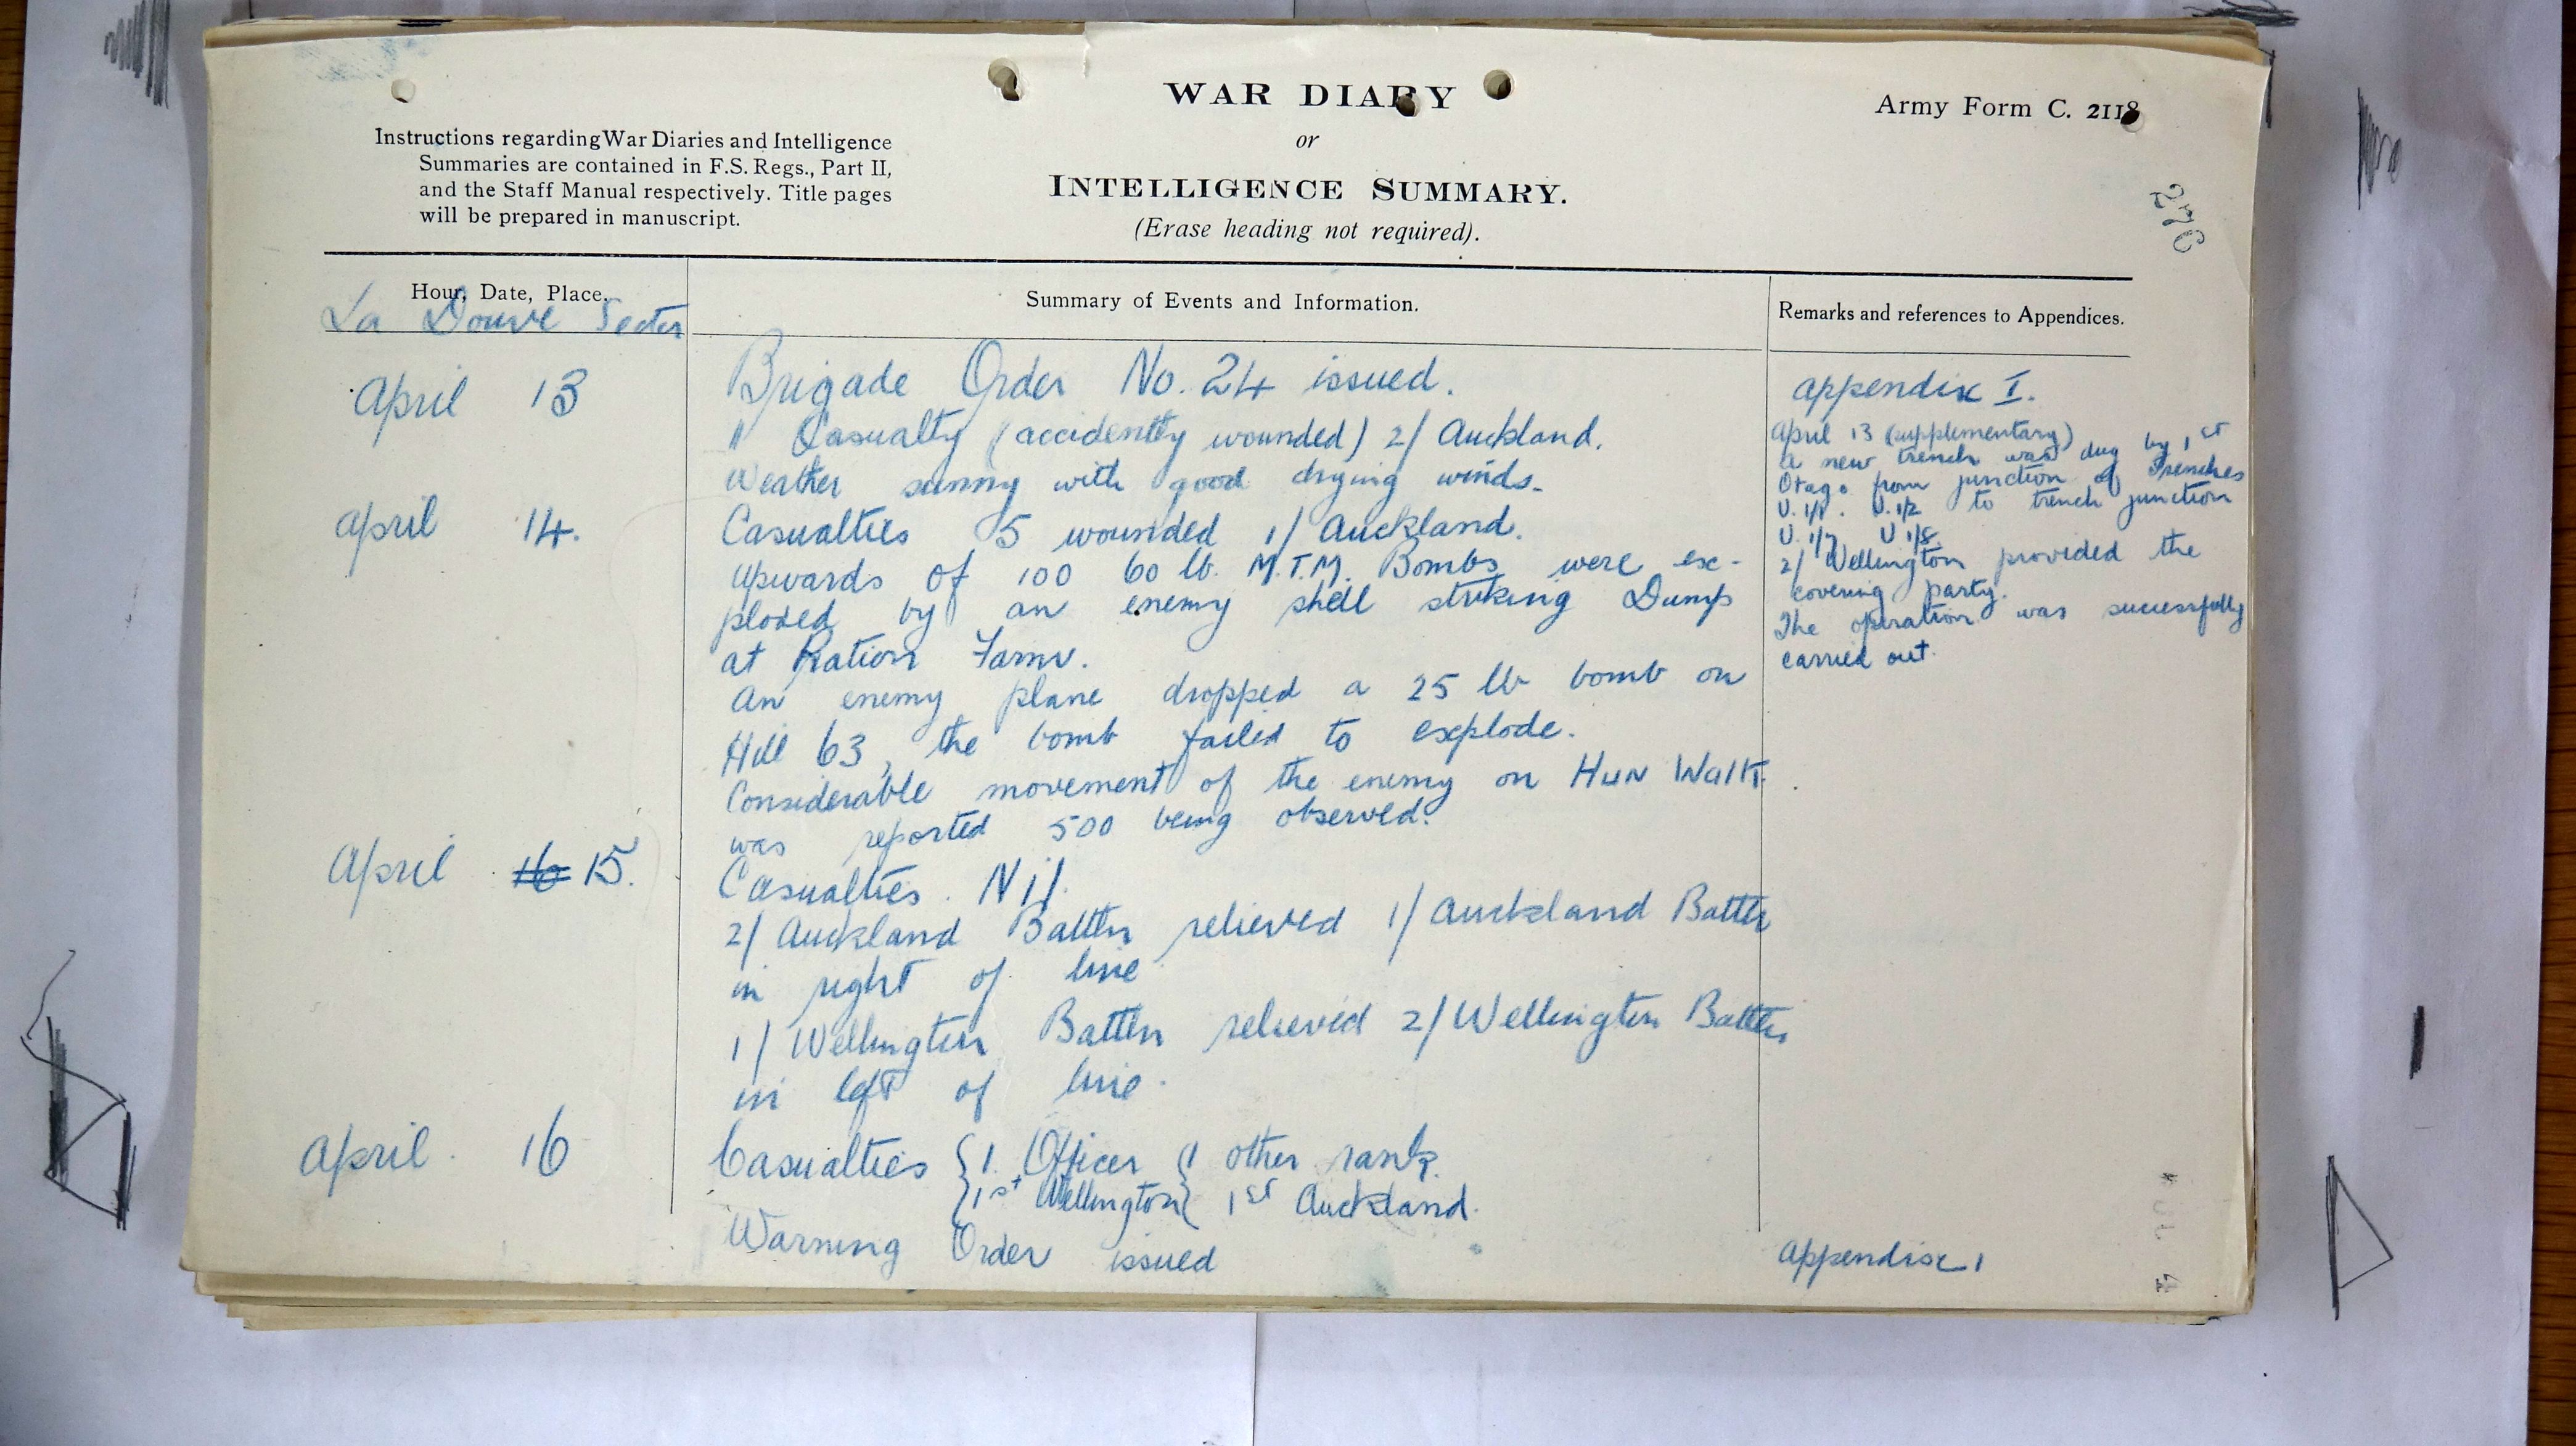 WAR DIARY
or
INTELLIGENCE SUMMARY.
(Erase heading not required).
Army Form C. 2118
276
Instructions regarding War Diaries and Intelligence
Summaries are contained in F.S. Regs., Part II,
and the Staff Manual respectively. Title pages
will be prepared in manuscript.
Hour, Date, Place.
Summary of Events and Information.
Remarks and references to Appendices.
La Douve Sector
April 13
Brigade Order No. 24 issued.
" Casualty (accidently wounded) 2/ Auckland.
Weather sunny with good drying winds.
April 14.
Casualties 5 wounded 1/ Auckland.
Upwards of 100 60 lb. M.T.M. Bombs were ex-
ploded by an enemy shell striking Dump
at Ration Farm.
An enemy plane dropped a 25 lb bomb on
Hill 63, the bomb failed to explode.
Considerable movement of the enemy on HUN WALK
was reported 500 being observed.
April 16 15.
Casualties. Nil.
2/ Auckland Battln relieved 1/ Auckland Battln
in right of line
1/ Wellington Battln relieved 2/ Wellington Battln
in left of line.
April. 16
Casualties { 1. Officer { 1 other rank.
{ 1st Wellington { 1st Auckland.
Warning Order issued
Appendix I.
April 13 (supplementary)
A new trench was dug by 1st
Otago from junction of Trenches
U. 1/1. U. 1/2 to trench junction
U. 1/7 U 1/8.
2/ Wellington provided the
covering party.
The operation was successfully
carried out.
Appendix 1